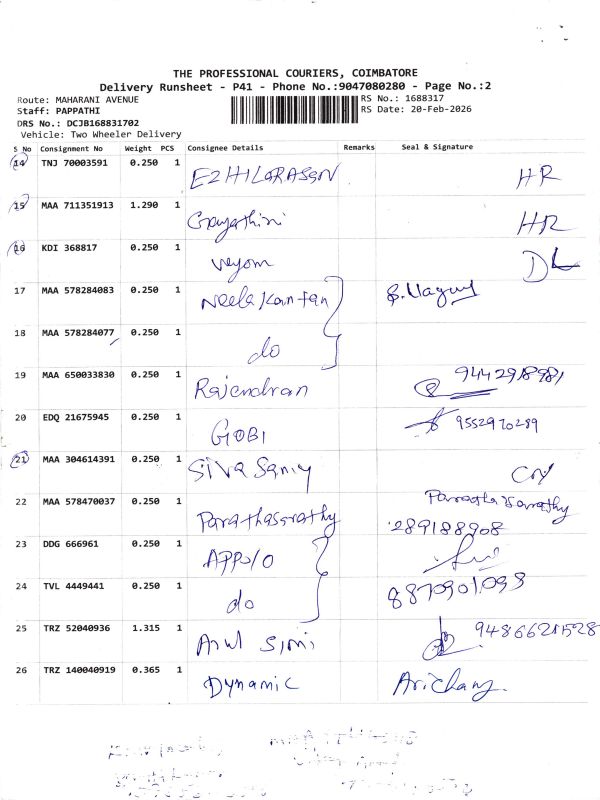 THE PROFESSIONAL COURIERS, COIMBATORE
Delivery Runsheet - P41 - Phone No.:9047080280 - Page No.:2
Route: MAHARANI AVENUE RS No.: 1688317
Staff: PAPPATHI RS Date: 20-Feb-2026
DRS No.: DCJB168831702
Vehicle: Two Wheeler Delivery
S No Consignment No Weight PCS Consignee Details Remarks Seal & Signature
14 TNJ 70003591 0.250 1 EZHILARASAN HR
15 MAA 711351913 1.290 1 Gayathiri HR
16 KDI 368817 0.250 1 Veyom DL
17 MAA 578284083 0.250 1 Neela Kantan
18 MAA 578284077 0.250 1 do
19 MAA 650033830 0.250 1 Rajendran 9442918981
20 EDQ 21675945 0.250 1 GOBI 9552970289
21 MAA 304614391 0.250 1 Siva Samy
22 MAA 578470037 0.250 1 Parathasarathy Parathasarathy
289188908
23 DDG 666961 0.250 1 APPOlO
24 TVL 4449441 0.250 1 do 8870901098
25 TRZ 52040936 1.315 1 Arul 9486621528
26 TRZ 140040919 0.365 1 Dynamic